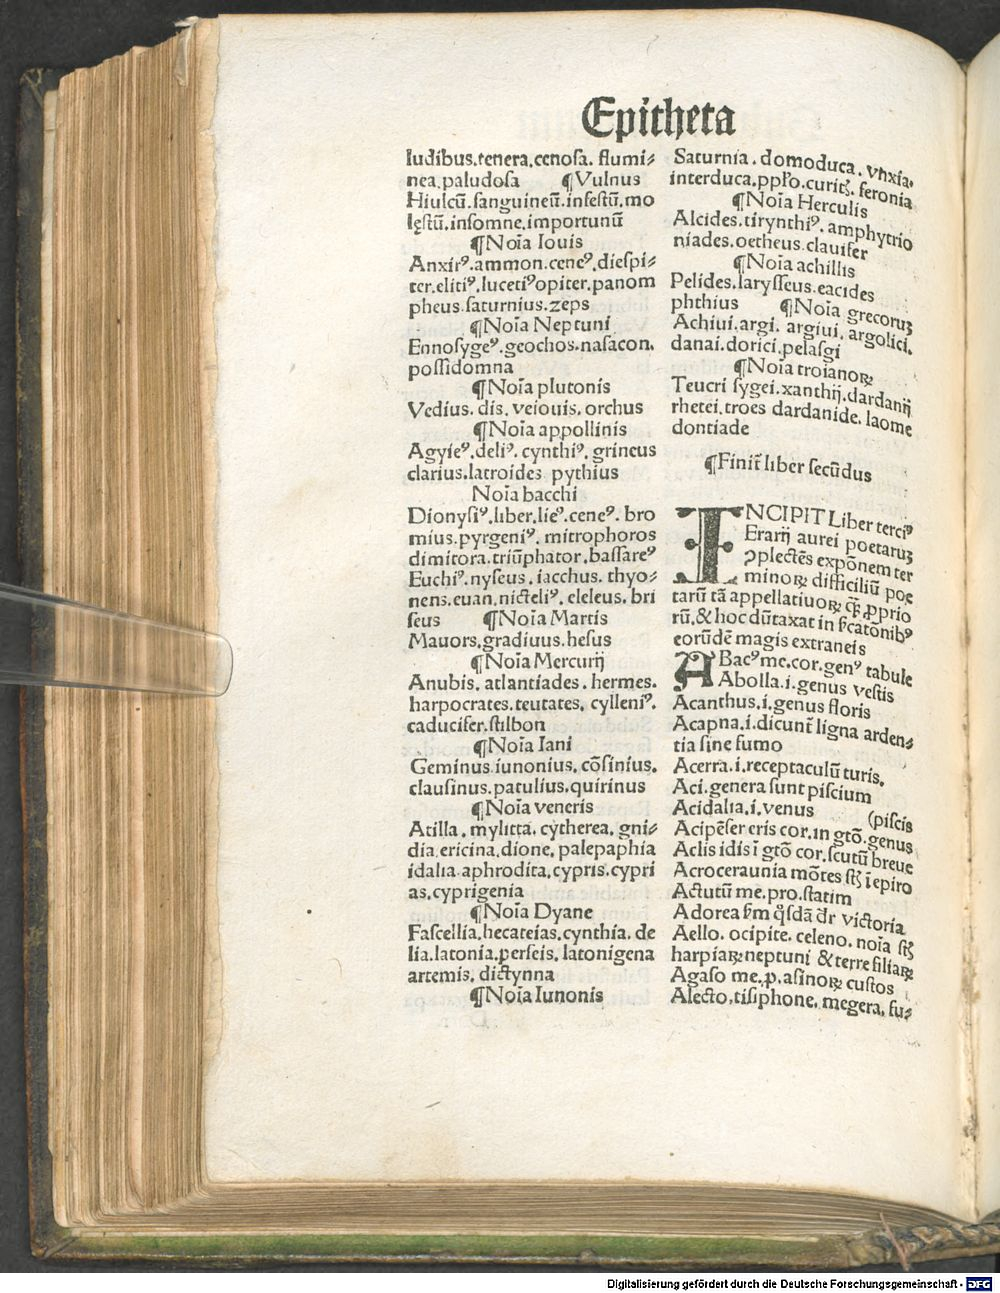 Epitheta
ludibus.tenera.cenosa. flumi⸗
nea.paludosa ¶Vulnus
Hiulcū.sanguineū.infestū.mo
lęstū.insomne.importunū
¶Noīa Iouis
Anxirꝰ.ammon.ceneꝰ.diespi⸗
ter.elitiꝰ.lucetiꝰopiter.panom
pheus.saturnius.zeps
¶Noīa Neptuni
Ennosygeꝰ.geochos.nasacon.
possidomna
¶Noīa plutonis
Vedius. dis. veiouis. orchus
¶Noīa appollinis
Agyieꝰ.deliꝰ. cynthiꝰ. grineus
clarius.latroides pythius
Noīa bacchi
Dionysiꝰ.liber.lieꝰ.ceneꝰ. bro
mius.pyrgeniꝰ. mitrophoros
dimitora.triūphator.bassareꝰ
Euchiꝰ.nyseus. iacchus. thyo⸗
nens.euan.nicteliꝰ. eleleus. bri
seus ¶Noīa Martis
Mauors.gradiuus.hesus
¶Noīa Mercurij
Anubis. atlantiades. hermes.
harpocrates.teutates. cylleniꝰ.
caducifer.stilbon
¶Noīa Iani
Geminus iunonius. cōsinius.
clausinus.patulius.quirinus
¶Noīa veneris
Atilla. mylitta. cytherea. gni⸗
dia.ericina.dione. palepaphia
idalia.aphrodita.cypris.cypri
as.cyprigenia
¶Noīa Dyane
Fascellia.hecateias.cynthia. de
lia.latonia.perseis. latonigena
artemis. dictynna
¶Noīa Iunonis
Saturnia. domoduca. vnxia.
interduca.ppl'o.curitꝫ. feronia
¶Noīa Herculis
Alcides.tirynthiꝰ. amphytrio
niades.oetheus.clauifer
¶Noīa achillis
Pelides.larysseus.eacides
phthius ¶Noīa grecoruꝫ
Achiui.argi. argiui. argolici.
danai.dorici.pelasgi
¶Noīa troianoꝝ
Teucri sygei.xanthij.dardanij
rhetei.troes dardanide. laome
dontiade
¶Finit̄ liber secūdus
INCIPIT Liber terciꝰ
Erarij aurei poetaruꝫ
ↄplectēs expōnem ter
minoꝝ difficiliū poe
tarū tā appellatiuoꝝ ꝙ̄ ꝓprio
rū.& hoc dūtaxat in st̄catōnibꝰ
eorūdē magis extraneis
ABacꝰ me.cor.genꝰ tabule
Abolla.i.genus vestis
Acanthus.i.genus floris
Acapna.i.dicunt̄ ligna arden⸗
tia sine fumo
Acerra.i.receptaculū turis.
Aci.genera sunt piscium
Acidalia.i.venus (piscis
Acipēser eris cor.in gtō.genus
Aclis idis ī gtō cor.scutū breue
Acroceraunia mōtes st̄ꝫ ī epiro
Actutū me.pro.statim
Adorea sm̄ qͦsdā dr̄ victoria
Aello. ocipite. celeno. noīa st̄ꝫ
harpiaꝝ neptuni & terre filiaꝝ
Agaso me.p.asinoꝝ custos
Alecto.tisiphone. megera. fu⸗
Digitalisierung gefördert durch die Deutsche Forschungsgemeinschaft - DFG